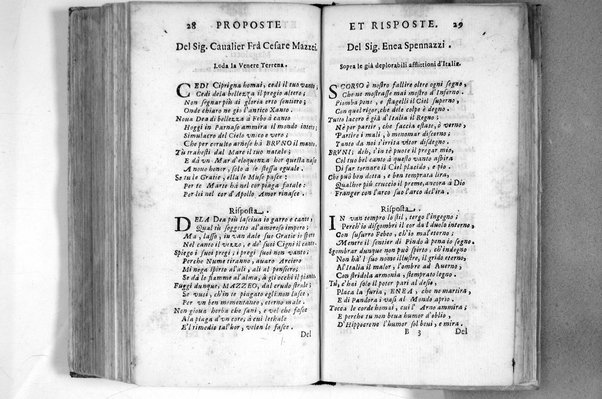 28 PROPOSTE
Del Sig. Caualier Frà Cesare Mazzei.
Loda la Venere Terrena.
CEDI Ciprigna homai, cedi il tuo vanto;
Cedi dela bellezza il pregio altero;
Non segnar più di gloria erto sentiero;
Onde chiaro ne giò l'antico Xanto.
Noua Dea di bellezza à Febo à canto
Hoggi in Parnaso ammira il mondo intero;
Simulacro del Cielo vnico e vero;
Che per cerulto arnese hà BRVNO il manto.
Tù trahesti dal Mare il tuo natale;
E dà vn Mar d'eloquenza hor questa nasce
A nono honor, solo à se stessa eguale.
Se tu le Gratie, ella le Muse pasce:
Per te Marte hà nel cor piaga fatale:
Per lei nel cor d'Apollo Amor rinasce.
Risposta.
DEA Dea più lasciua io garro e canto;
Qual tù soggetto al'amoroso impero:
Ma, lasso, in van dale sue Gratie io spero
Nel canto il vezzo, e dè suoi Cigni il canto.
Spiego i suoi pregi; i pregi suoi non vanto:
Perche Nume tiranno, auaro Arciero
Mi nega spirto al'ali, ali al pensiero;
Se dà le fiamme al'alma, à gli occhi il pianto.
Fuggi dunque, MAZZEO, dal crudo strale;
Se vuoi, ch'in te piagato egli non lasce,
Per vn ben momentaneo, eterno male.
Non gioua herba che sani, e vel che fasce
Ala piaga d'vn core; à cui lethale
E'l rimedio tal'hor, velen le fasce.
Del
ET RISPOSTE. 29
Del Sig. Enea Spennazzi.
Sopra le già deplorabili afflittioni d'Italia.
SCORSO è nostro fallire oltre ogni segno,
Che ne mostrasse mai mostro d'Inferno.
Piomba pene, e flagelli il Ciel superno,
Con quel rigor, che dele colpe è degno.
Tutto lacero è già d'Italia il Regno;
Nè per partir, che faccia estate, ò verno,
Partire i mali, ò menomar discerno;
Tanto da noi s'irrita vltor disdegno.
BRVNI; deh, s'in tè puote il pregar mio,
Col tuo bel canto à questo vanto aspira
Di far tornare il Ciel placido, e pio.
Che può ben detta, e ben temprata lira,
Qualhor più cruccio il preme, ancora à Dio
Franger con l'arco suo l'arco del'ira.
Risposta.
IN van tempro lo stil, tergo l'ingegno;
Perch'io disgombri il cor dal duolo interno,
Con susurro Febeo, ch'in mal'eterno;
Mentre il sentier di Pindo à pena io segno.
Sgombrar dunque non può spirto, ch'indegno
Non hà'l suo nome illustre, il grido eterno,
Al'Italia il malor, l'ombre ad Auerno,
Con stridola armonia, stemprato legno.
Tù, c'hai solo il poter pari al desio,
Placa la furia, ENEA, che ne martira,
E di Pandora i vasi al Mondo aprio.
Tocca le corde homai, cui l'Arno ammira;
E perche tu non beua humor d'oblio,
D'Hippocrene l'humor sol beui, e mira.
B 3 Del